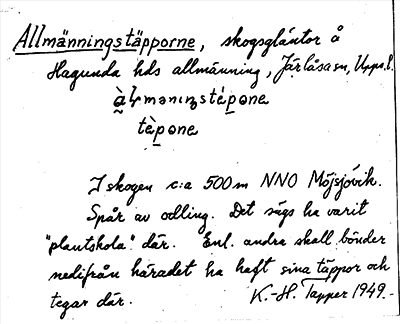 Allmänningstäpporne, skogsgläntor å
Hagunda hds allmänning, Järlåsa sn, Upps. l.
tèpone
I skogen c:a 500 m NNO Möjsjövik.
Spår av odling. Det sägs ha varit
"plantskola" där. Enl. andra skall bönder
nedifrån häradet ha haft sina täppor och
tegar där. K.-H. Tapper 1949.-